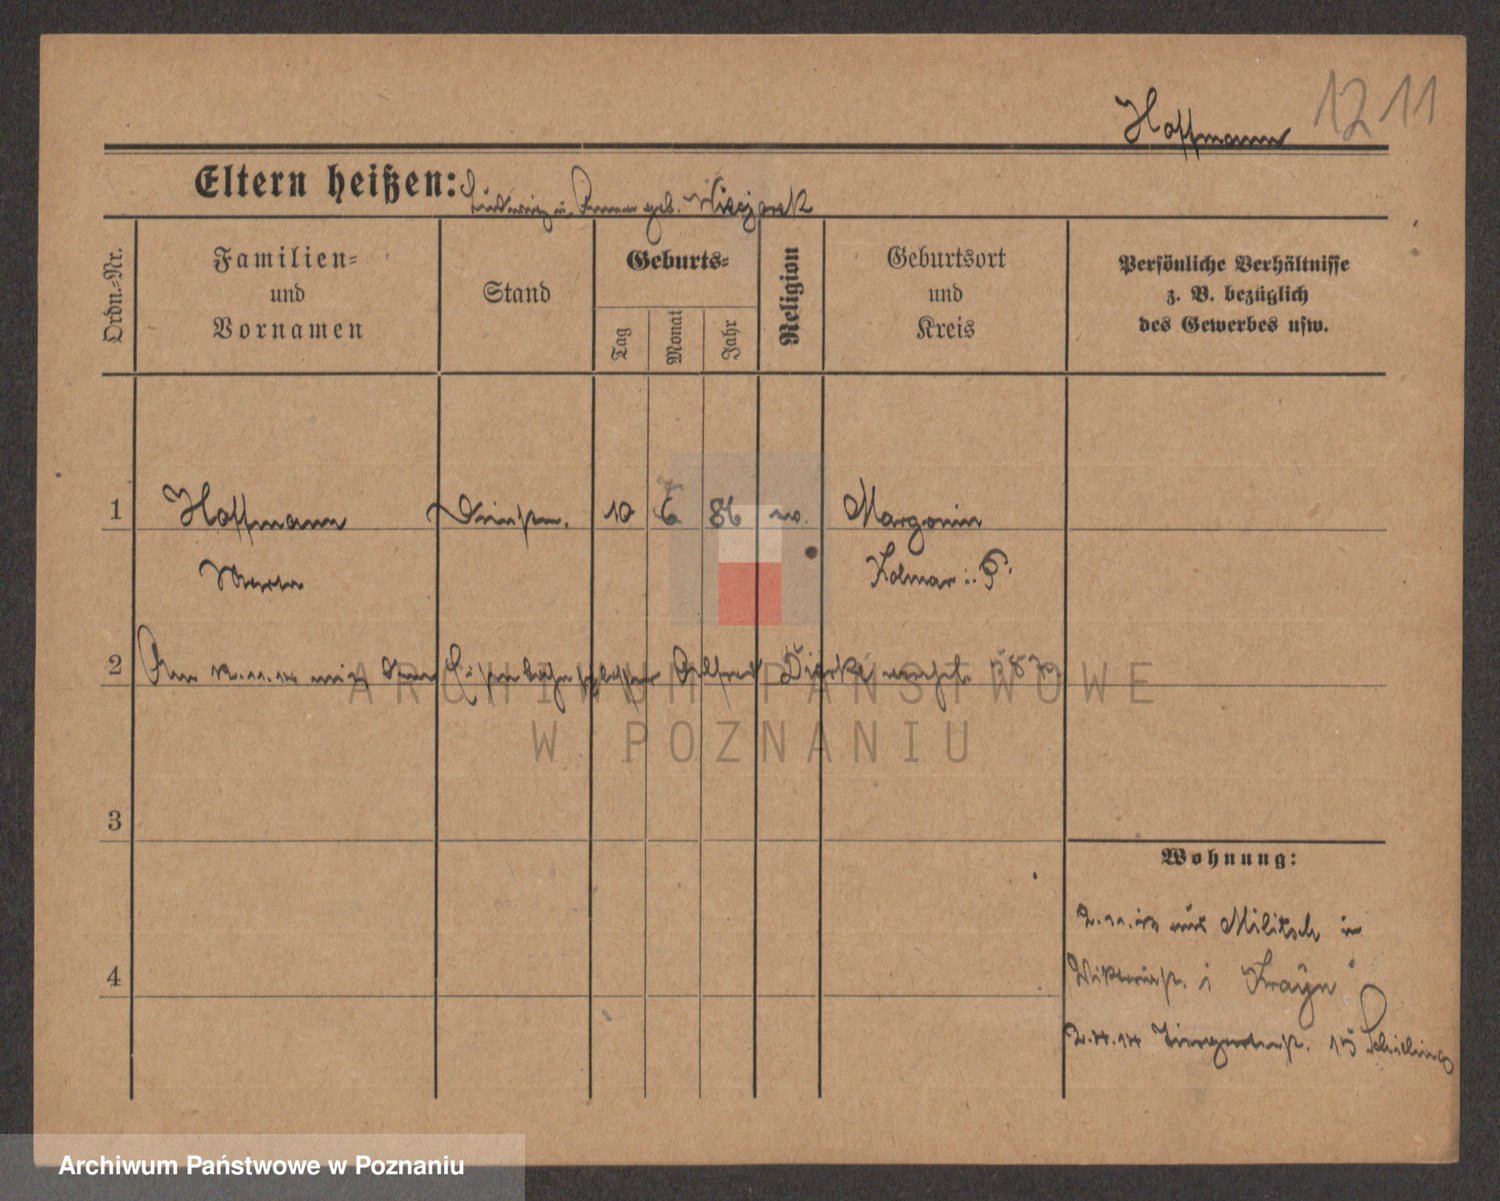 Hoffmann 1211
Eltern heißen: Ludwig u. Anna geb. Wieczorek
Ordn.-Nr.
Familien-
und
Vornamen
Stand
Geburts-
Tag
Monat
Jahr
Religion
Geburtsort
und
Kreis
Persönliche Verhältnisse
z. B. bezüglich
des Gewerbes usw.
1 Hoffmann 10 6 86 Margonin
Kolmar i. P.
2 Am mit dem Eisenbahnschlosser Alfred
3
4
Wohnung:
aus Militsch in
Tiergartenst. 15 Schilling
ARCHIWUM PAŃSTWOWE
W POZNANIU
Archiwum Państwowe w Poznaniu